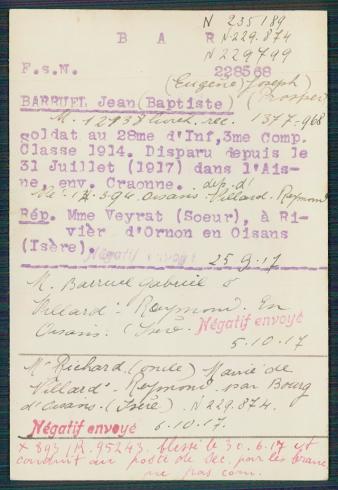 N 235189
B A R N 229.874
N 229799
F.s.N. 228568
(Eugène Joseph)
BARRUEL Jean (Baptiste) (Prosper)
M. 12938 rec. 1377-968
soldat au 28me d'Inf,3me Comp.
Classe 1914. Disparu depuis le
31 Juillet (1917) dans l'Ais-
ne, env. Craonne. dep. d'
Né Oisans Villard-Raymond
Rép. Mme Veyrat (Soeur), à Ri-
vièr d'Ornon en Oisans
(Isère).
Négatif envoyé 25-9-17
M. Barruel Gabriel à
Villard-Raymond. En
Oisans. (Isère. Négatif envoyé
5-10-17
Mr Richard (oncle) Mairie de
Villard-Reymond par Bourg
d'Oisans. (Isère) N 229.874.
Négatif envoyé 6-10-17.
x 895/R. 95243. blessé le 30.6.17 et
conduit au poste de sec. par les branc
ne pas com.